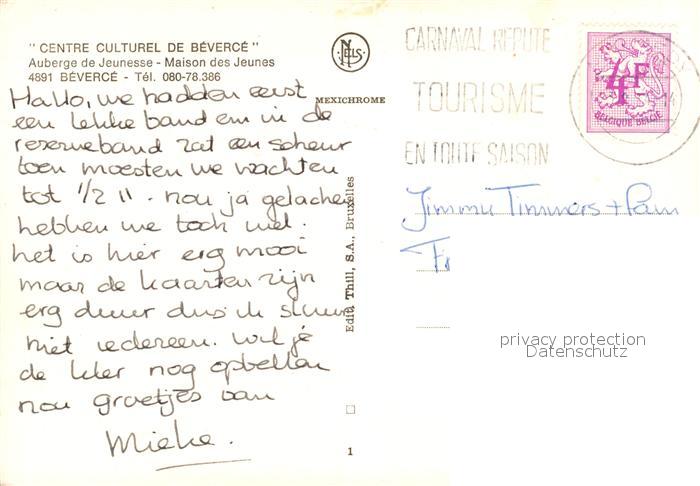 " CENTRE CULTUREL DE BÉVERCÉ "
Auberge de Jeunesse - Maison des Jeunes
4891 BÉVERCÉ - Tél. 080-78.386
Hallo, we hadden eerst
een lekke band en in de
reserveband zat een scheur
toen moesten we wachten
tot 1/2 11. nou ja gelachen
hebben we toch wel.
het is hier erg mooi
maar de kaarten zijn
erg duur dus ik stuur
niet iedereen. wil je
de later nog opbellen
nou groetjes van
Mieke.
NELS
MEXICHROME
Edit. Thill, S.A., Bruxelles
1
CARNAVAL REPUTE
TOURISME
EN TOUTE SAISON
4F
BELGIQUE BELGIË
Jimmy Timmers + Pam
Fr
privacy protection
Datenschutz